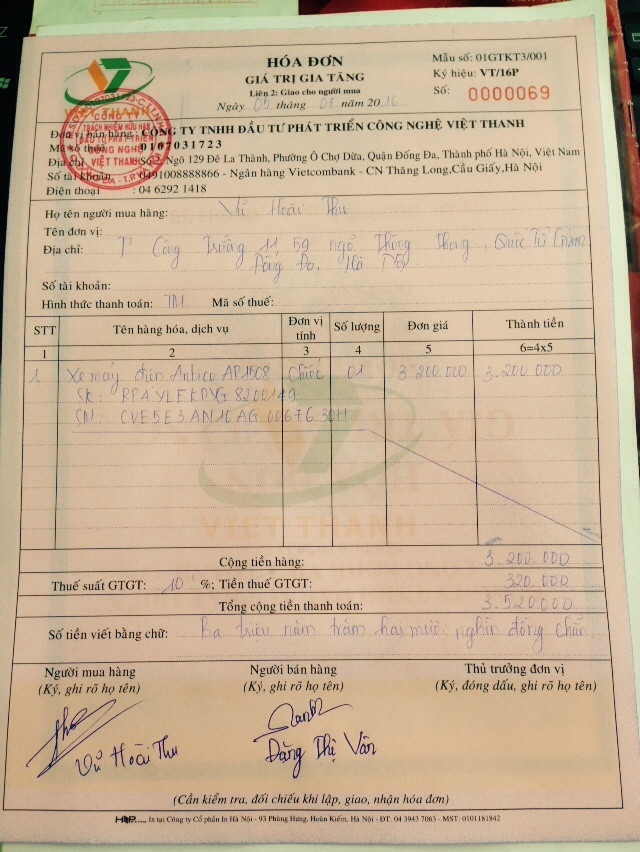 HÓA ĐƠN
GIÁ TRỊ GIA TĂNG
Liên 2: Giao cho người mua
Ngày 05 tháng 07 năm 2016
Mẫu số: 01GTKT3/001
Ký hiệu: VT/16P
Số: 0000069
VIỆT THANH
CÔNG TY
TRÁCH NHIỆM HỮU HẠN
ĐẦU TƯ PHÁT TRIỂN
CÔNG NGHỆ
VIỆT THANH
Đơn vị bán hàng: CÔNG TY TNHH ĐẦU TƯ PHÁT TRIỂN CÔNG NGHỆ VIỆT THANH
Mã số thuế: 0107031723
Địa chỉ: Ngõ 129 Đê La Thành, Phường Ô Chợ Dừa, Quận Đống Đa, Thành phố Hà Nội, Việt Nam
Số tài khoản: 0491008888866 - Ngân hàng Vietcombank - CN Thăng Long, Cầu Giấy, Hà Nội
Điện thoại: 04 6292 1418
Họ tên người mua hàng: Vũ Hoài Thu
Tên đơn vị:
Địa chỉ: Công Trường 11 59 ngõ Thông Phong, Quốc Tử Giám
Đống Đa, Hà Nội
Số tài khoản:
Hình thức thanh toán: TM Mã số thuế:
STT Tên hàng hóa, dịch vụ Đơn vị tính Số lượng Đơn giá Thành tiền
1 2 3 4 5 6=4x5
1. Xe máy điện Anbico AP1508 Chiếc 01 3.200.000 3.200.000
SK: RPAYLEKDYG 8200149
SN: CVE5E3AN10AG 00676 30H
VIỆT THANH
Cộng tiền hàng: 3.200.000
Thuế suất GTGT: 10 %; Tiền thuế GTGT: 320.000
Tổng cộng tiền thanh toán: 3.520.000
Số tiền viết bằng chữ: Ba triệu năm trăm hai mươi nghìn đồng chẵn
Người mua hàng Người bán hàng Thủ trưởng đơn vị
(Ký, ghi rõ họ tên) (Ký, ghi rõ họ tên) (Ký, đóng dấu, ghi rõ họ tên)
Vũ Hoài Thu Đặng Thị Vân
(Cần kiểm tra, đối chiếu khi lập, giao, nhận hóa đơn)
In tại Công ty Cổ phần In Hà Nội - 93 Phùng Hưng, Hoàn Kiếm, Hà Nội - ĐT: 04 3943 7063 - MST: 0101181842